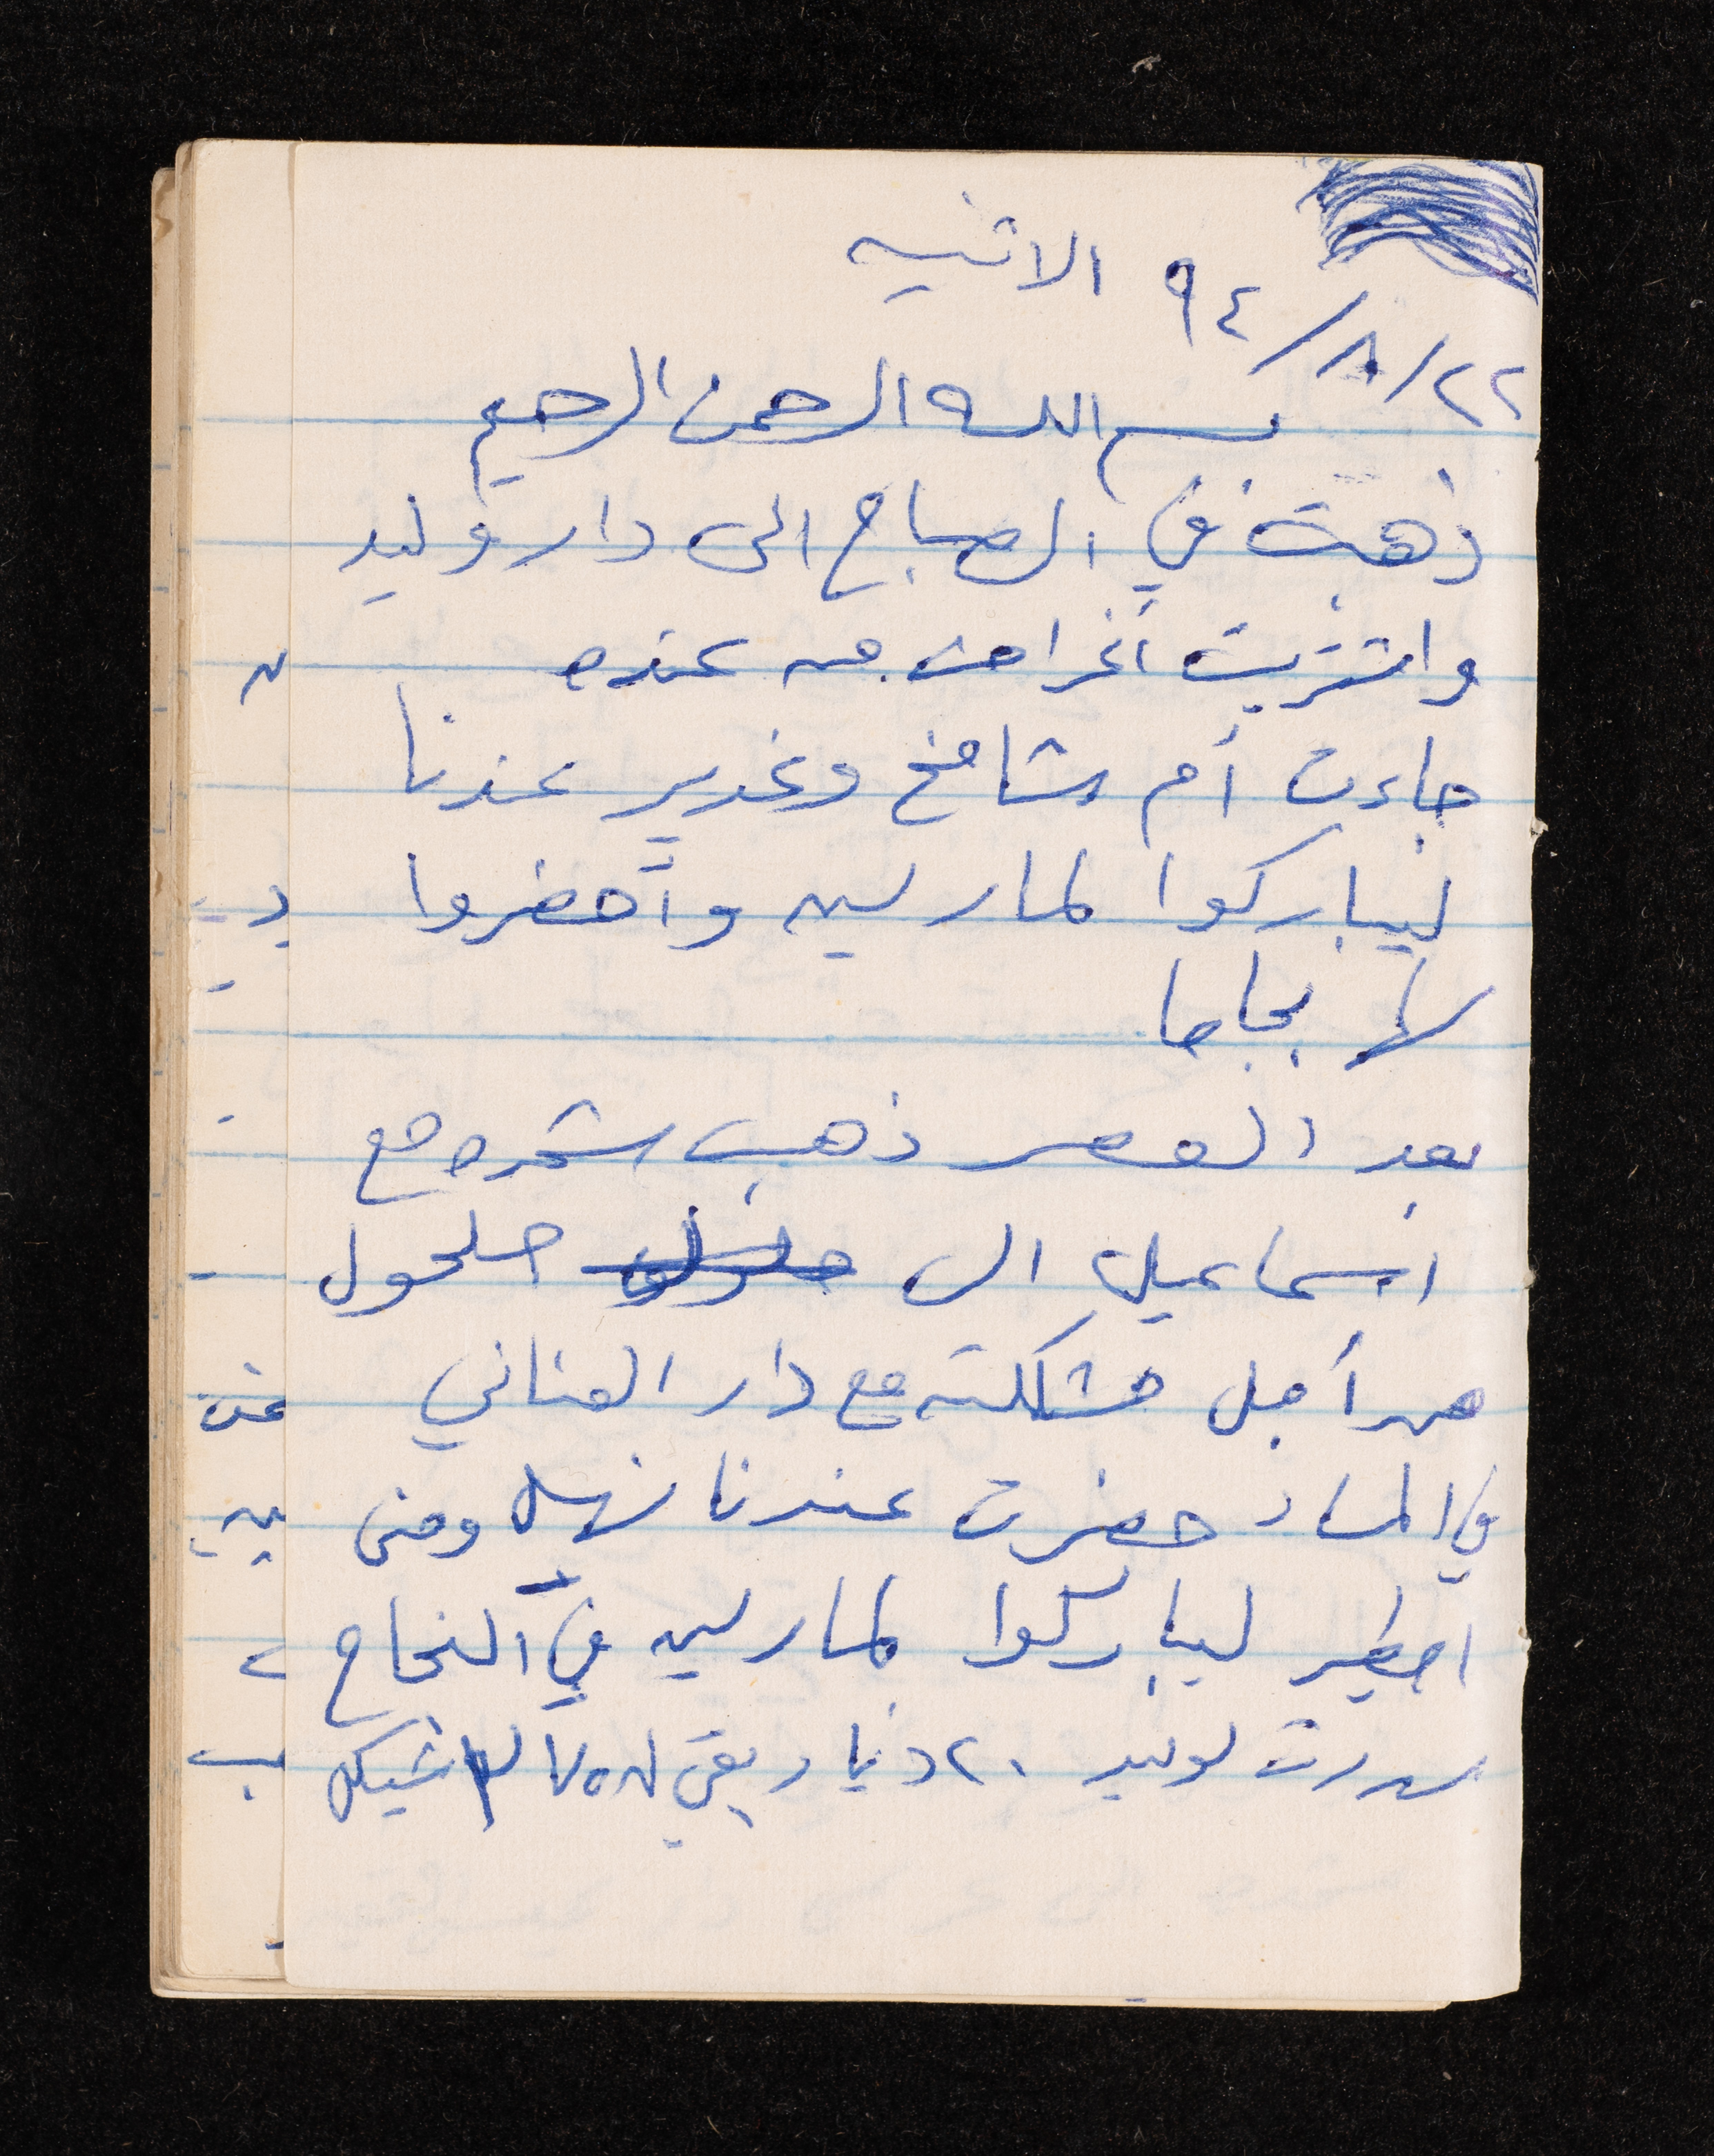 الاثنين
٢٢/٨/٩٤
بسم الله الرحمن الرحيم
ذهبت في الصباح الى دار وليد
واشتريت أغراض من عنده
جاءت أم شامخ وغدير عندنا
ليباركوا لمارلين وأحضروا
لها بجاما
بعد العصر ذهب شحده مع
اسماعيل الى حلحول
من أجل مشكلته مع دار العناني
في المساء حضرت عندنا نهيل ومنى
اطير ليباركوا لمارلين في النجاح
سددت لوليد ٢٠ دينار بقي له ٧٥ شيكل